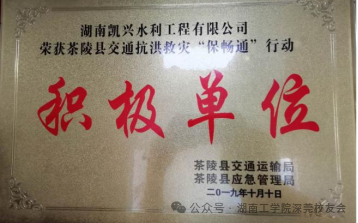 湖南凯兴水利工程有限公司
荣获茶陵县交通抗洪救灾“保畅通”行动
积极单位
茶陵县交通运输局
茶陵县应急管理局
二〇一九年十月十日
公众号·湖南工学院深莞校友会